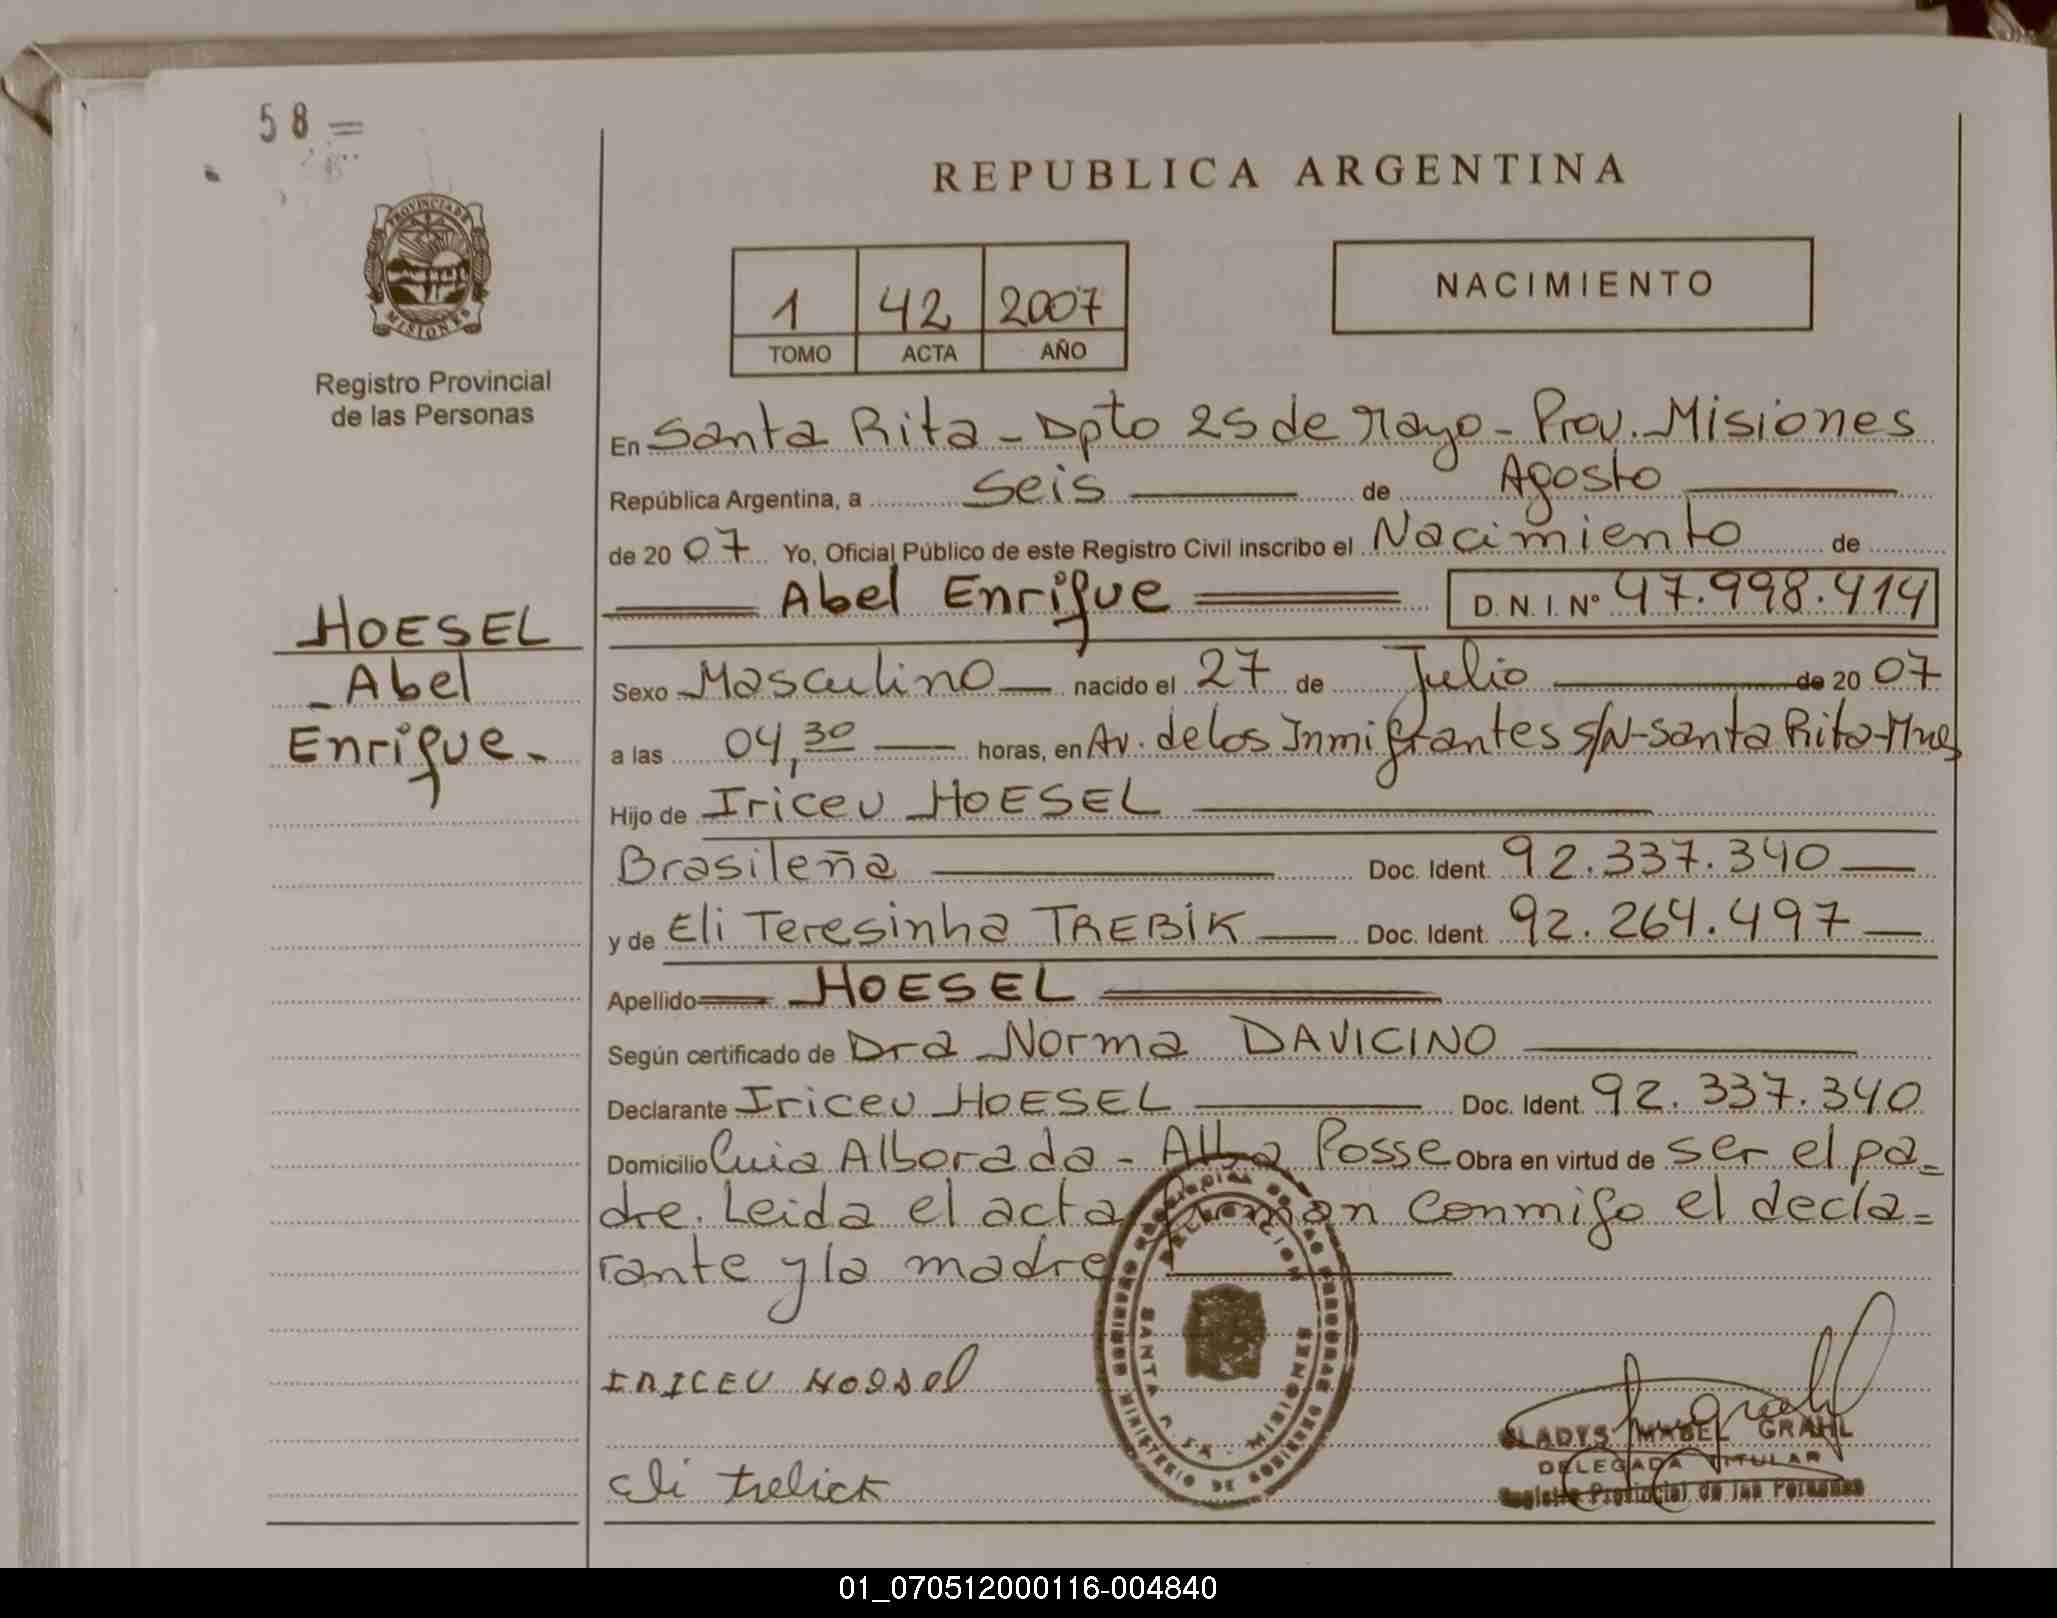 58 =
PROVINCIA DE
MISIONES
Registro Provincial
de las Personas
HOESEL
Abel
Enrique.
REPUBLICA ARGENTINA
1 42 2007
TOMO ACTA AÑO
NACIMIENTO
En Santa Rita - Dpto 25 de Mayo - Prov. Misiones
República Argentina, a Seis de Agosto
de 20 07 Yo, Oficial Público de este Registro Civil inscribo el Nacimiento de
Abel Enrique D. N. I. Nº 47.998.414
Sexo Masculino nacido el 27 de Julio de 20 07
a las 04,30 horas, en Av. de los Inmigrantes s/N-Santa Rita-Mnes
Hijo de Iriceu HOESEL
Brasileña Doc. Ident. 92.337.340
y de Eli Teresinha TREBIK Doc. Ident. 92.264.497
Apellido HOESEL
Según certificado de Dra Norma DAVICINO
Declarante Iriceu HOESEL Doc. Ident. 92.337.340
Domicilio Cuia Alborada - Alba Posse Obra en virtud de ser el pa=
dre. Leida el acta firman conmigo el decla=
rante y la madre
IRICEU HOESEL
Eli trebick
SANTA RITA - MISIONES
MINISTERIO DE GOBIERNO
GLADYS MABEL GRAHL
DELEGADA TITULAR
Registro Provincial de las Personas
01_070512000116-004840